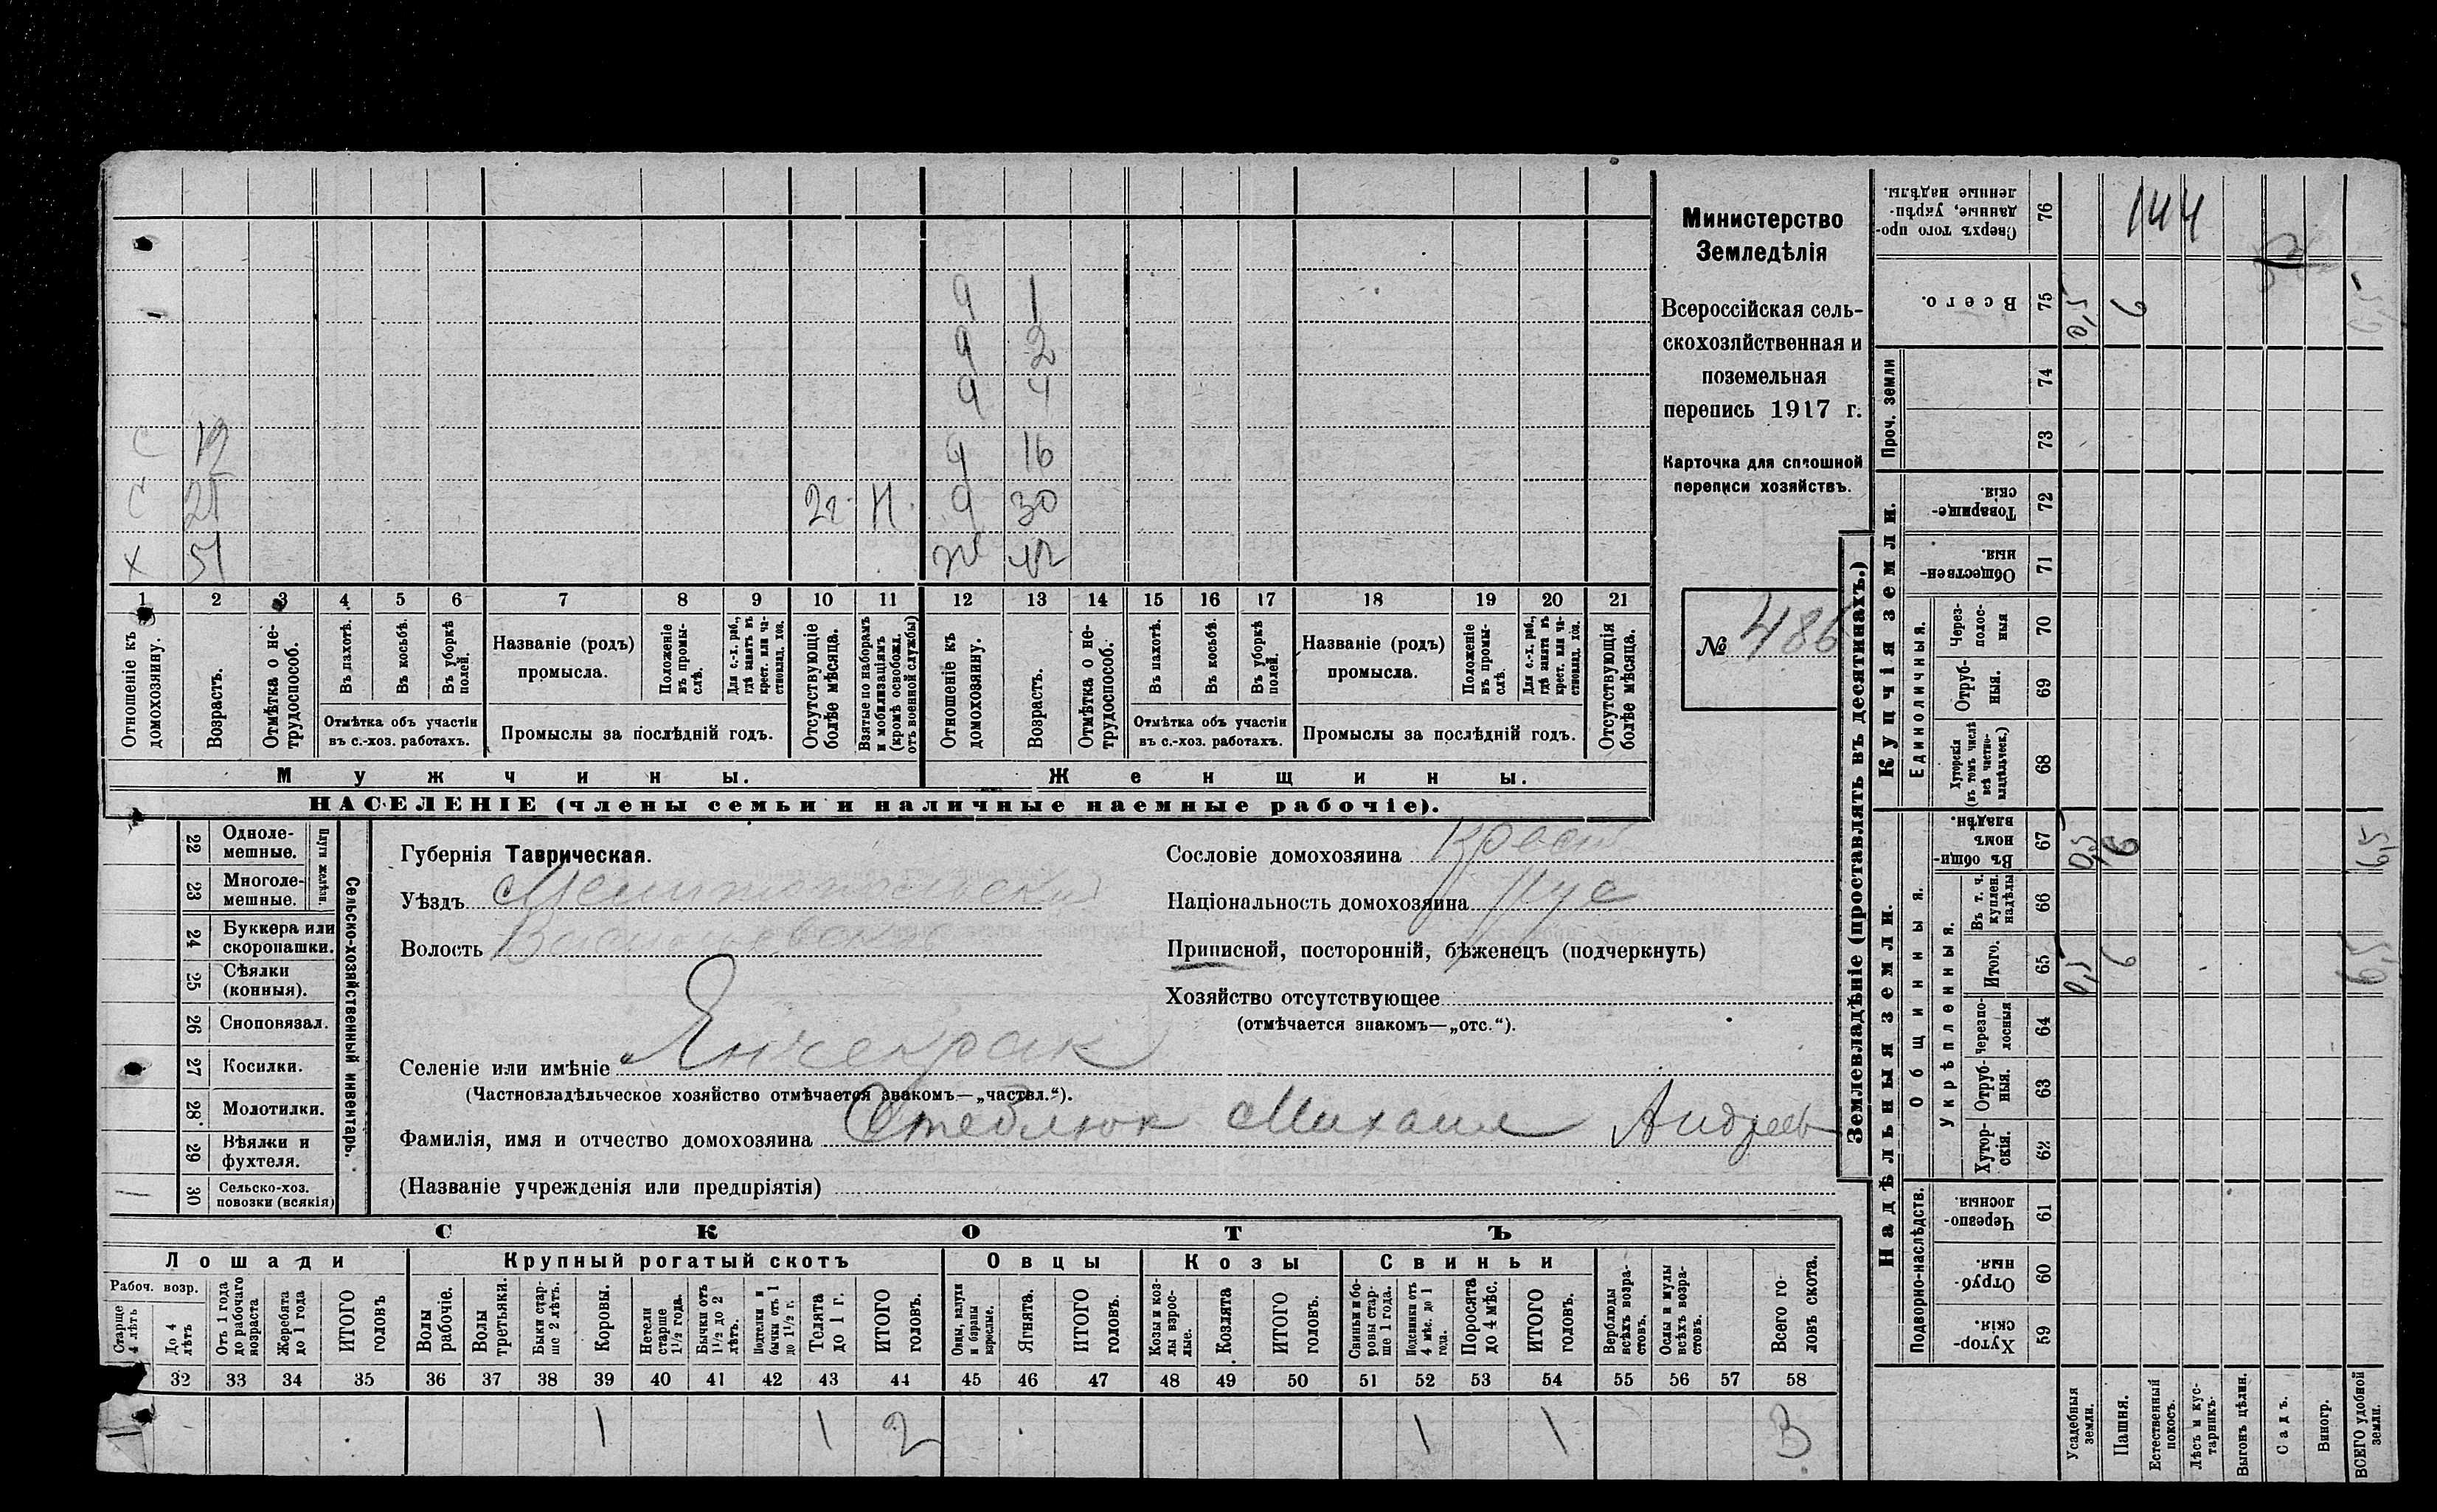 Министерство
Земледѣлія
Всероссійская сель-
скохозяйственная и
поземельная
перепись 1917 г.
Карточка для сплошной
переписи хозяйствъ.
№ 486
ч 1
ч 2
ч 4
С 19 ч 16
С 25 2г. Н. ч 30
Х 51 ж 42
1 2 3 4 5 6 7 8 9 10 11 12 13 14 15 16 17 18 19 20 21
Отношеніе къ домохозяину.
Возрастъ.
Отмѣтка о не-трудоспособ.
Въ пахотѣ.
Въ косьбѣ.
Въ уборкѣ полей.
Отмѣтка объ участіи
въ с.-хоз. работахъ.
Названіе (родъ)
промысла.
Положеніе въ промы-слѣ.
Для с.-х. раб., гдѣ занятъ въ крест. или ча-стновлад. хоз.
Промыслы за послѣдній годъ.
Отсутствующіе болѣе мѣсяца.
Взятые по наборамъ и мобилизаціямъ (кромѣ освобожд. отъ военной службы)
Отношеніе къ домохозяину.
Возрастъ.
Отмѣтка о не-трудоспособ.
Въ пахотѣ.
Въ косьбѣ.
Въ уборкѣ полей.
Отмѣтка объ участіи
въ с.-хоз. работахъ.
Названіе (родъ)
промысла.
Положеніе въ промы-слѣ.
Для с.-х. раб., гдѣ занята въ крест. или ча-стновлад. хоз.
Промыслы за послѣдній годъ.
Отсутствующія болѣе мѣсяца.
Мужчины.
Женщины.
НАСЕЛЕНІЕ (члены семьи и наличные наемные рабочіе).
22 Одноле-мешные.
23 Многоле-мешные.
Плуги желѣзн.
24 Буккера или скоропашки.
25 Сѣялки (конныя).
26 Сноповязал.
27 Косилки.
28 Молотилки.
29 Вѣялки и фухтеля.
30 Сельско-хоз. повозки (всякія)
Сельско-хозяйственный инвентарь.
Губернія Таврическая.
Уѣздъ Мелитопольский
Волость Васильевская
Селеніе или имѣніе Янчекрак
(Частновладѣльческое хозяйство отмѣчается знакомъ—„частвл.“).
Фамилія, имя и отчество домохозяина Стеблюк Михаил Андреев
(Названіе учрежденія или предпріятія)
Сословіе домохозяина Крест
Національность домохозяина Рус
Приписной, посторонній, бѣженецъ (подчеркнуть)
Хозяйство отсутствующее
(отмѣчается знакомъ—„отс.“).
СКОТЪ
Лошади Крупный рогатый скотъ Овцы Козы Свиньи
Рабоч. возр.
Старше 4 лѣтъ
До 4 лѣтъ
Отъ 1 года до рабочаго возраста
Жеребята до 1 года
ИТОГО головъ
Волы рабочіе.
Волы третьяки.
Быки стар-ше 2 лѣтъ.
Коровы.
Нетели старше 1½ года.
Бычки отъ 1½ до 2 лѣтъ.
Подтелки и бычки отъ 1 до 1½ г.
Телята до 1 г.
ИТОГО головъ.
Овцы, валухи и бараны взрослые.
Ягнята.
ИТОГО головъ.
Козы и коз-лы взрос-лые.
Козлята
ИТОГО головъ.
Свиньи и бо-ровы стар-ше 1 года.
Подсвинки отъ 4 мѣс. до 1 года.
Поросята до 4 мѣс.
ИТОГО головъ.
Верблюды всѣхъ возра-стовъ.
Ослы и мулы всѣхъ возра-стовъ.
Всего го-ловъ скота.
32 33 34 35 36 37 38 39 40 41 42 43 44 45 46 47 48 49 50 51 52 53 54 55 56 57 58
1 1 2 1 1 3
Землевладѣніе (проставлять въ десятинахъ.)
Надѣльныя земли.
Купчія земли.
Проч. земли
Подворно-наслѣдств.
Общинныя.
Укрѣпленныя.
Единоличныя.
Сверхъ того про-данные, укрѣп-ленные надѣлы. 76 144
Всего. 75 0,5 6 6,5
74
73
Товарище-скія. 72
Обществен-ныя. 71
Через-полос-ныя 70
Отруб-ныя. 69
Хуторскія (въ томъ числѣ всѣ частно-владѣльческ.) 68
Въ общин-номъ владѣн. 67 0,5 6 6,5
Въ т. ч. куплен. надѣлы 66
Итого. 65 0,5 6 6,5
Черезпо-лосныя 64
Отруб-ныя. 63
Хутор-скія. 62
Черезпо-лосныя. 61
Отруб-ныя. 60
Хутор-скія. 59
Усадебныя земли.
Пашня.
Естественный покосъ.
Лѣсъ и кус-тарникъ.
Выгонъ цѣлин.
Садъ.
Виногр.
ВСЕГО удобной земли.